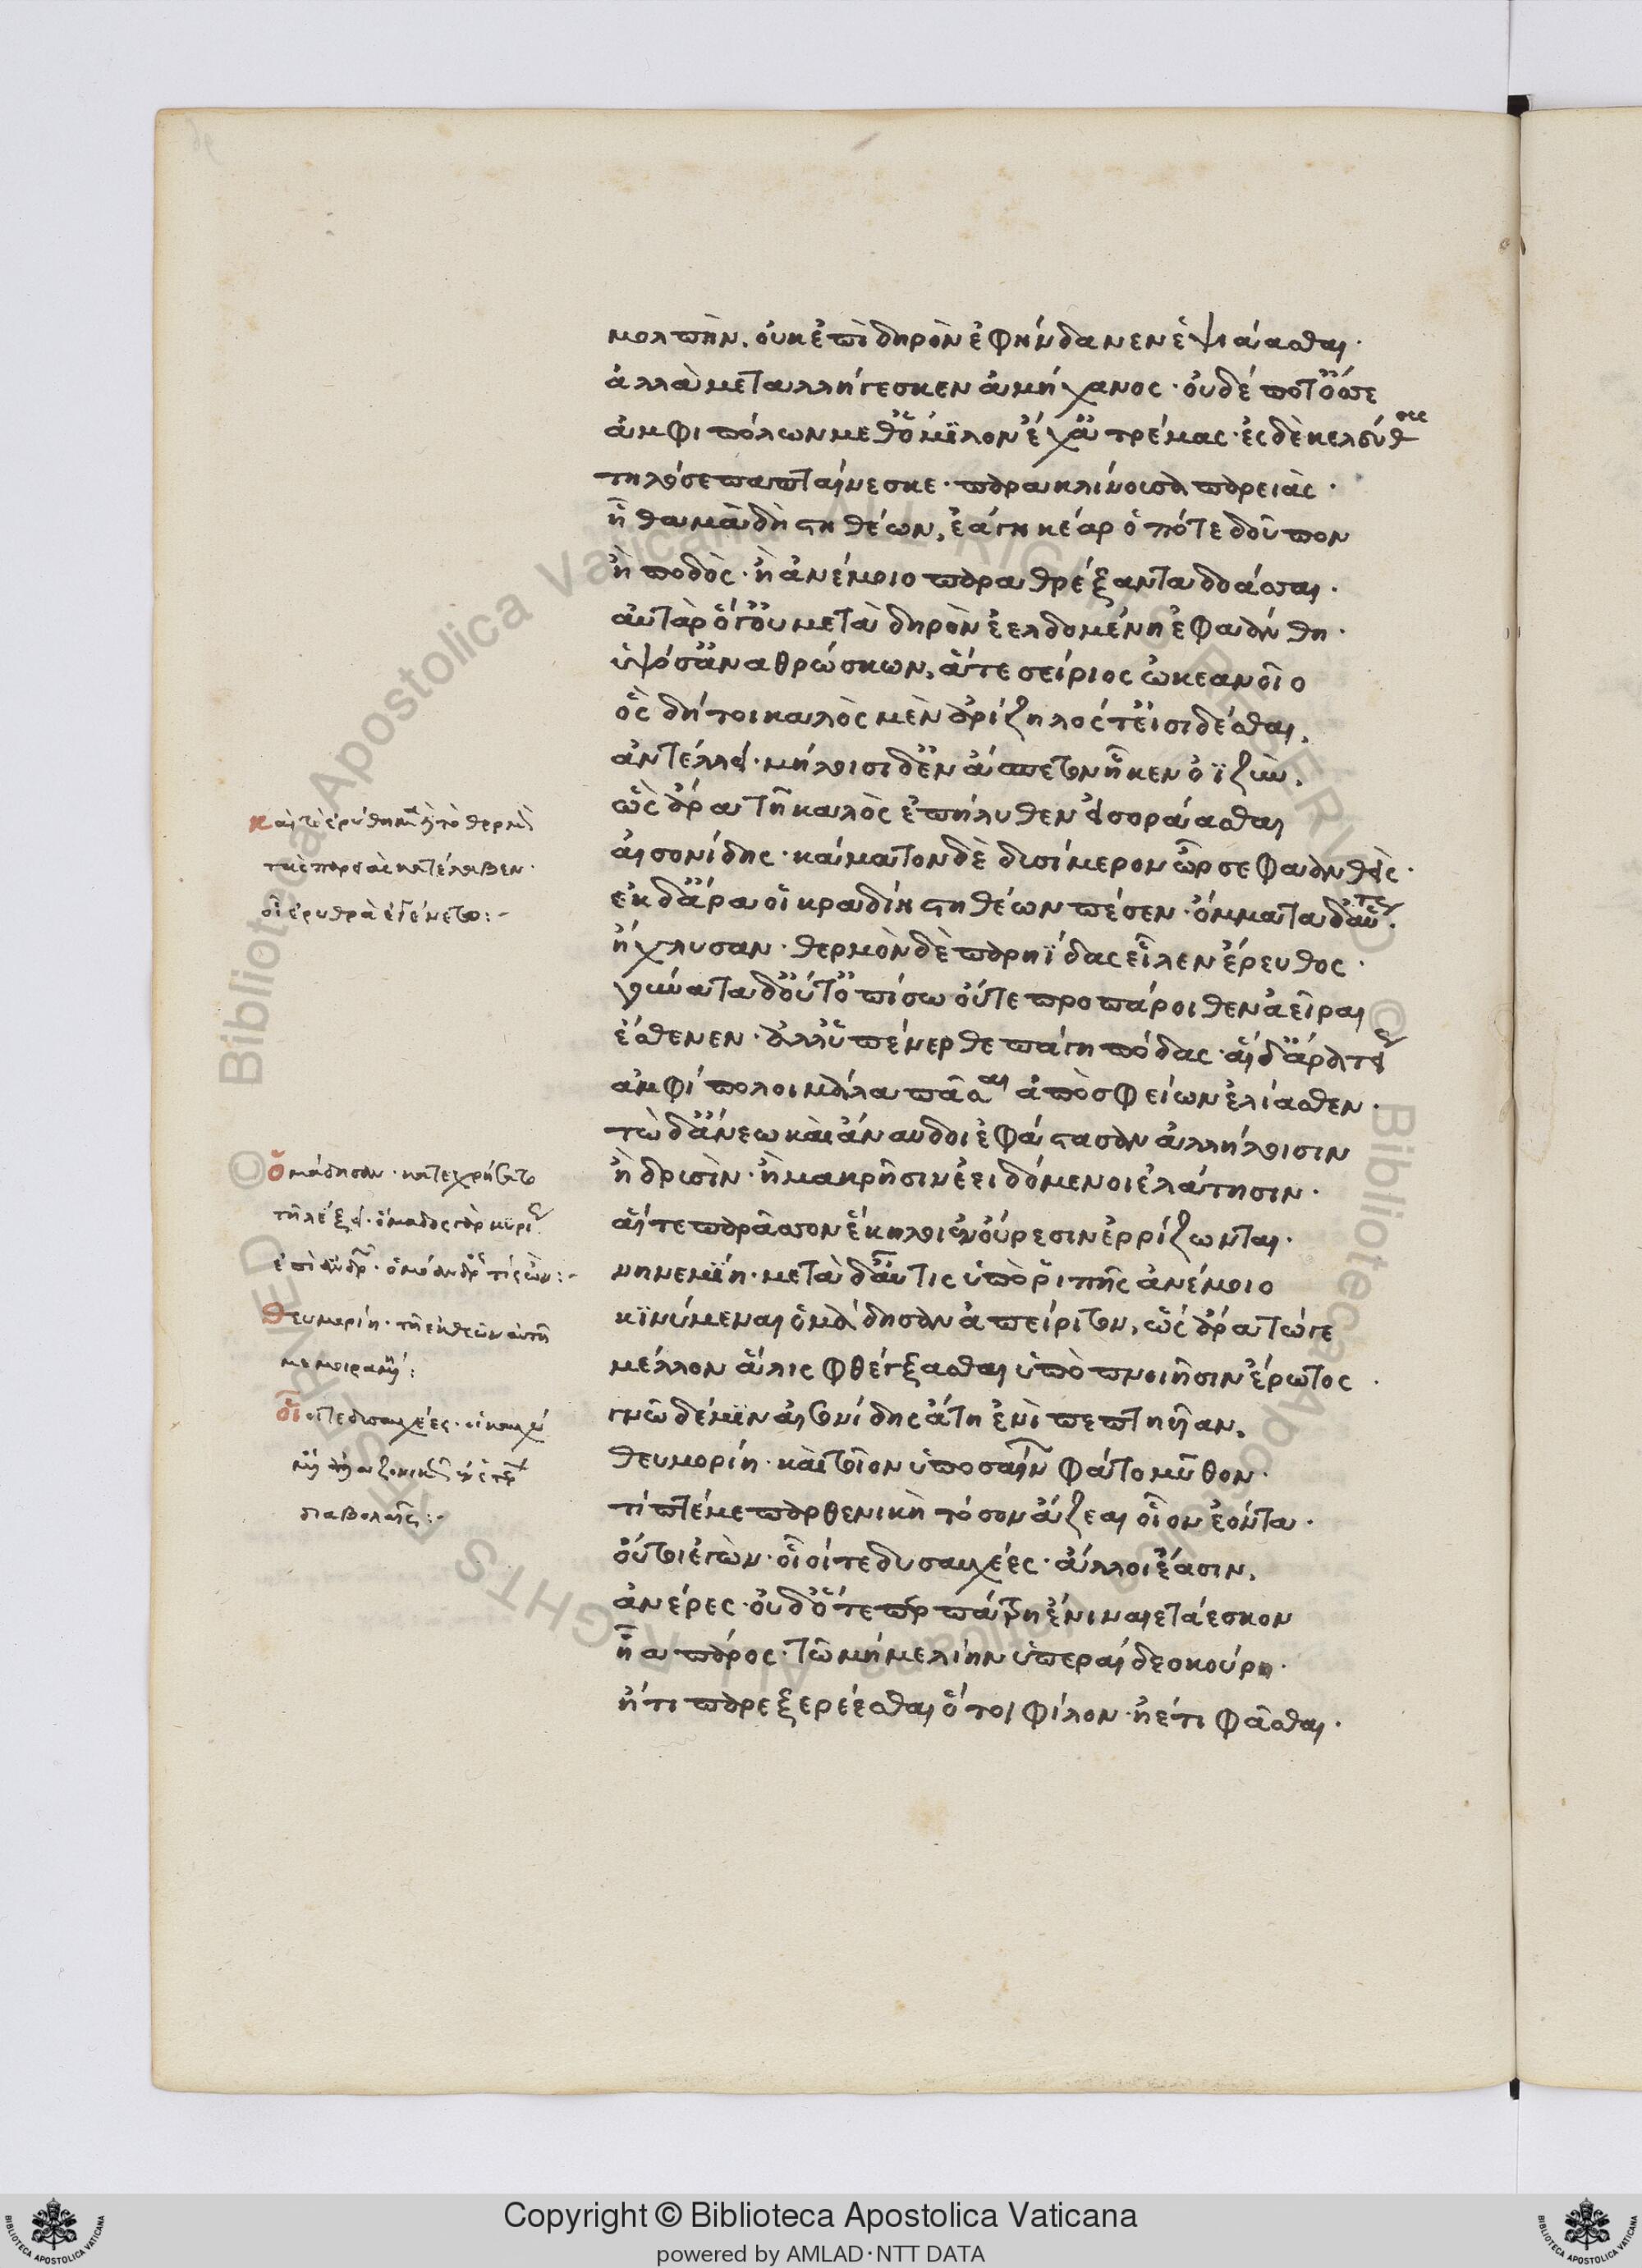 μολπὴν, οὐκ ἐπὶ δηρὸν ἐφήνδανεν ἑψιάασθαι·
ἀλλὰ μεταλλήγεσκεν ἀμήχανος· οὐδέ ποτ' ὄσσε
ἀμφιπόλων μεθ' ὅμιλον ἔχ' ἀτρέμας· ἐς δὲ κελεύθους
τηλόσε παπταίνεσκε· παρακλίνουσα παρειάς·
ἦ θαμὰ δὴ στηθέων, ἐάγη κέαρ ὁπότε δοῦπον
ἢ ποδὸς· ἢ ἀνέμοιο παραθρέξαντα δοάσσαι·
αὐτὰρ ὅγ' οὐ μετὰ δηρὸν ἐελδομένη ἐφαάνθη·
ὑψόσ' ἀναθρώσκων, ἅτε σείριος ὠκεανοῖο
ὃς δή τοι καλὸς μὲν ἀρίζηλός τ' εἰσιδέσθαι,
ἀντέλλει· μήλοισι δ' ἐν ἄσπετον ἧκεν ὀϊζὺν,
ὣς ἄρα τῇ καλὸς ἐπήλυθεν εἰσοράασθαι
αἰσονίδης· κάματον δὲ δυσίμερον ὦρσε φαανθείς·
ἐκ δ' ἄρα οἱ κραδίη στηθέων πέσεν· ὄμματα δ' αὔτως
ἤχλυσαν· θερμὸν δὲ παρηΐδας εἷλεν ἔρευθος·
γούνατα δ' οὔτ' ὀπίσω οὔτε προπάροιθεν ἀεῖραι
ἔσθενεν· ἀλλ' ὑπένερθε πάγη πόδας· αἱ δ' ἄρα τείως
ἀμφίπολοι μάλα πᾶσαι ἀπὸ σφείων ἐλίασθεν·
τὼ δ' ἄνεω καὶ ἄναυδοι ἐφάστασαν ἀλλήλοισιν
ἢ δρυσὶν· ἢ μακρῇσιν ἐειδόμενοι ἐλάτησιν·
αἵ τε παρᾶσσον ἕκηλοι ἐν οὔρεσιν ἐρρίζωνται·
νηνεμίη· μετὰ δ' αὖτις ὑπὸ ῥιπῆς ἀνέμοιο
κινύμεναι ὁμάδησαν ἀπείριτον, ὣς ἄρα τώγε
μέλλον ἅλις φθέγξασθαι ὑπὸ πνοιῇσιν ἔρωτος·
γνῶ δέ μιν αἰσονίδης ἄτῃ ἐνὶ πεπτηῆαν,
θευμορίῃ· καὶ τοῖον ὑποσαίνων φάτο μῦθον·
τίπτέ με παρθενικὴ τόσον ἅζεαι οἶον ἐόντα·
οὔτοι ἐγὼν· οἷοί τε δυσαυχέες· ἄλλοι ἔασιν,
ἀνέρες· οὐδ' ὅτε περ πάτρῃ ἔνι ναιετάεσκον
ἦα πάρος· τῶ μή με λίην ὑπεραίδεο κούρη·
ἤ τι παρεξερέεσθαι ὅ τοι φίλον· ἠέ τι φᾶσθαι·
Ὁμάδησαν· κατεχρήσατο
τῇ λέξει· ὅμαδος γὰρ κυρίως
Θευμορίη· τῇ ἐκ θεῶν αὐτῇ
οἷοί τε δυσαυχέες·
διαβολαῖς:-